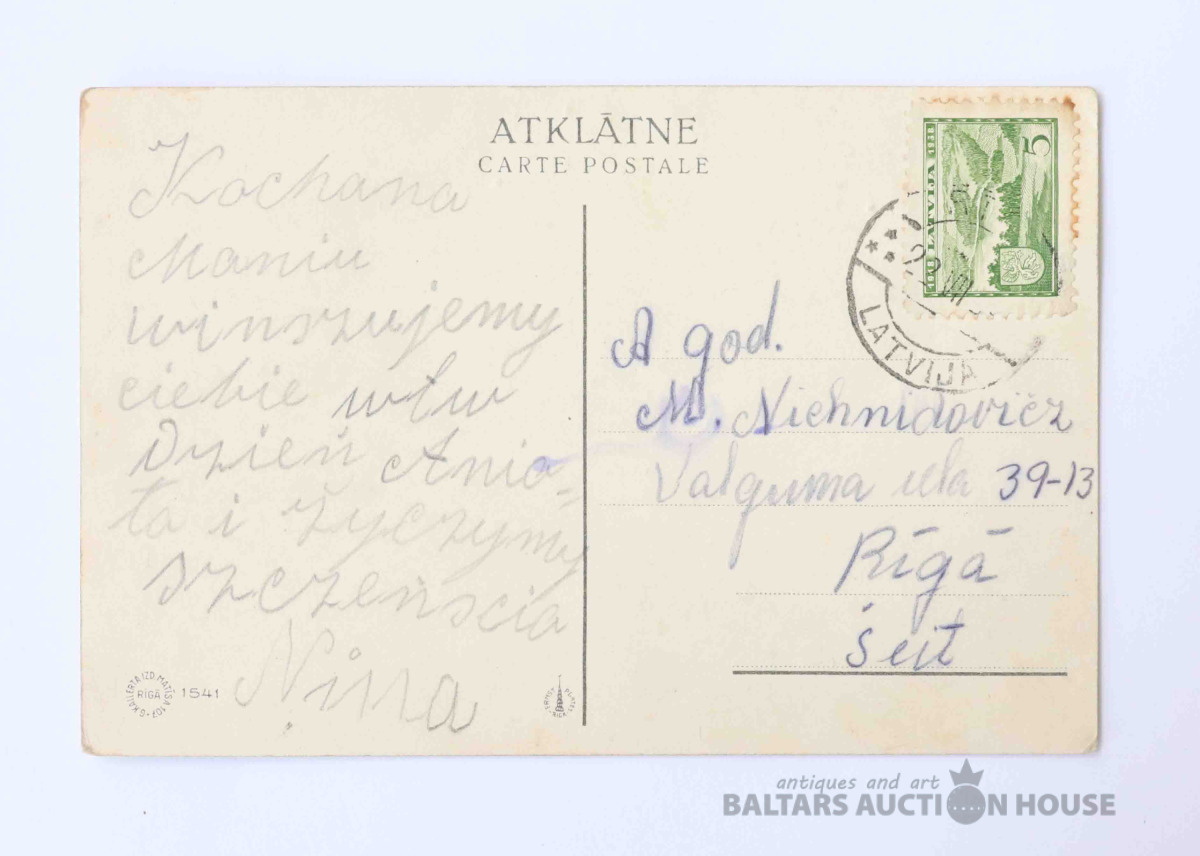 ATKLĀTNE
CARTE POSTALE
Kochana
Maniu
winszujemy
ciebie wtw
Dzień Anio=
ła i życzymy
szczenścia
Nina
A god.
M. Nichnidovičz
Valguma iela 39-13
Rīgā
Šeit
1918 LATVIJA 1938
5
LATVIJA
RĪGĀ
1541
antiques and art
BALTARS AUCTION HOUSE